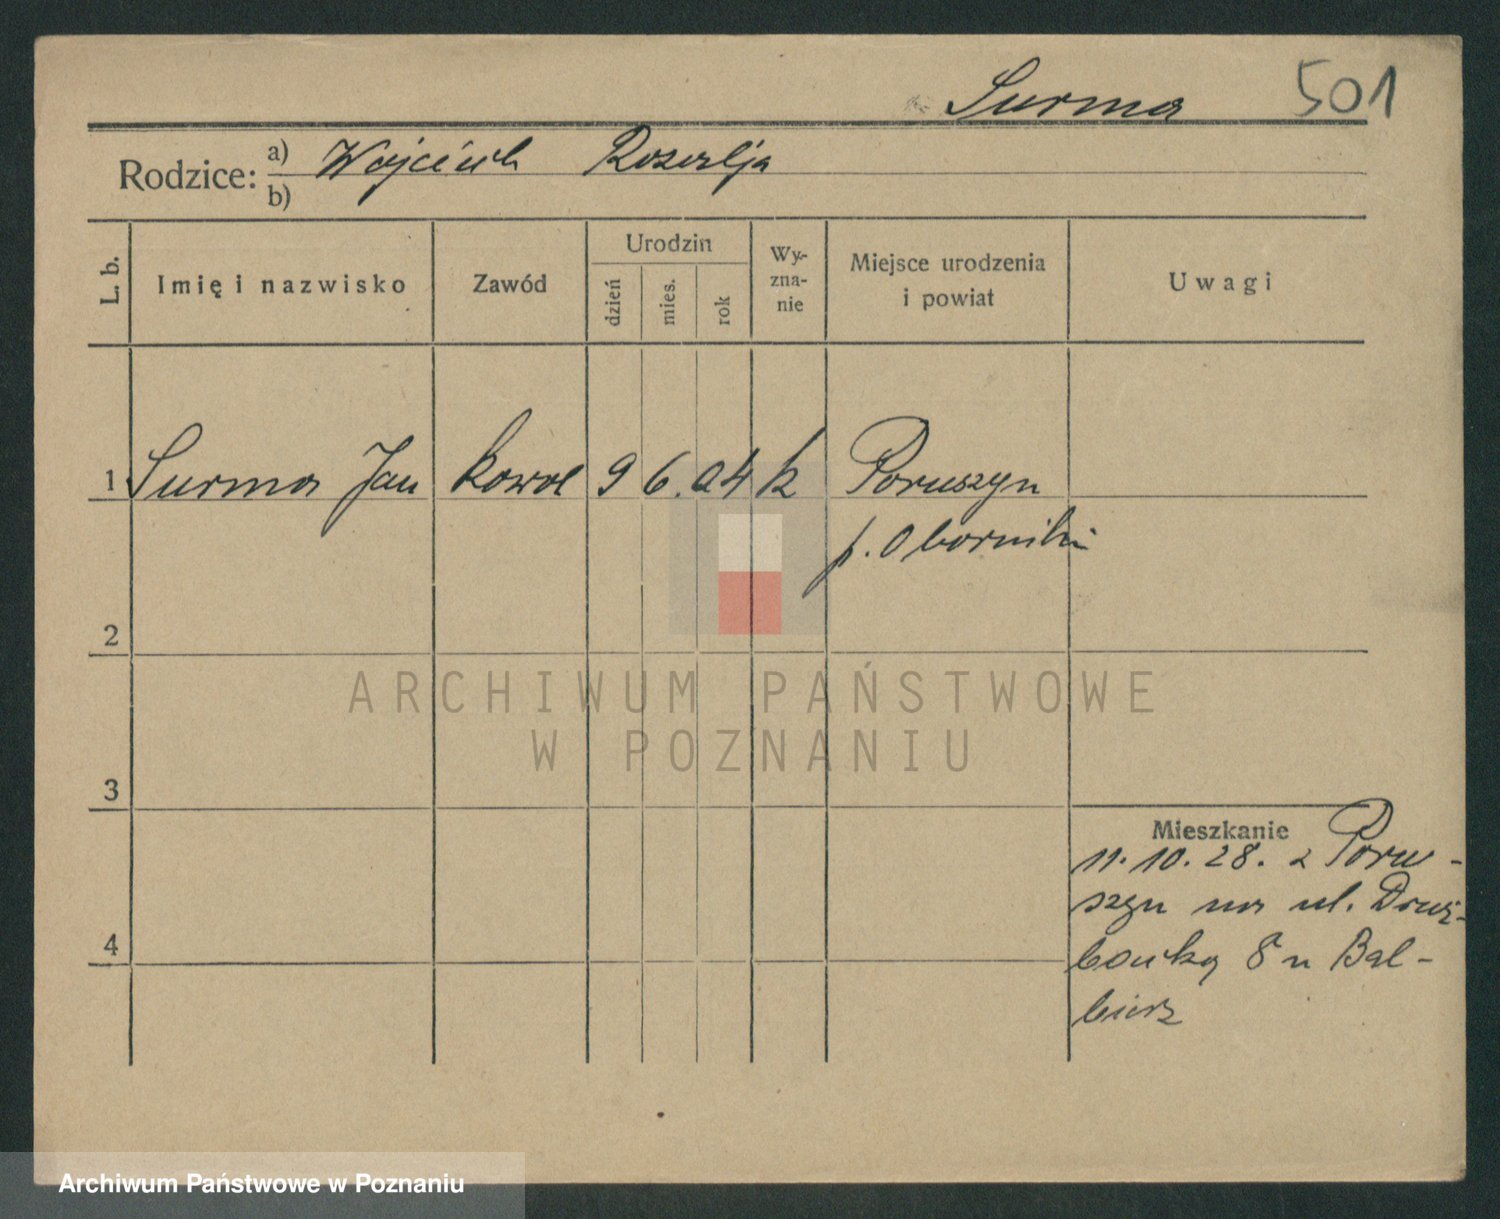 Surma 501
Rodzice: a) Wojciech Rozalja
b)
L. b. Imię i nazwisko Zawód Urodzin dzień mies. rok Wy-zna-nie Miejsce urodzenia i powiat Uwagi
1 Surma Jan kowal 9 6. 04 k Poruszyn
p. Oborniki
2
ARCHIWUM PAŃSTWOWE
W POZNANIU
3
Mieszkanie
11. 10. 28. z Poru-
szyn na ul.
8 u Bal-
bierz
4
Archiwum Państwowe w Poznaniu